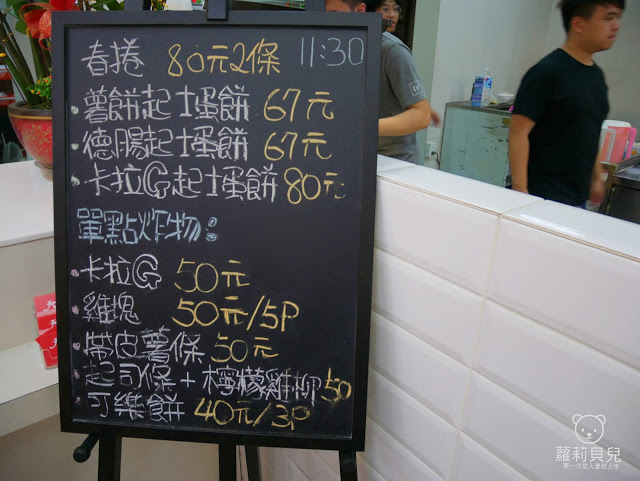 11:30
春捲 80元2條
·薯餅起士蛋餅 67元
·德腸起士蛋餅 67元
·卡拉G起士蛋餅 80元
單點炸物:
·卡拉G 50元
·雞塊 50元/5P
·帶皮薯條 50元
·起司條+檸檬雞柳 50
·可樂餅 40元/3P
蘿莉貝兒
第一次當人妻就上手